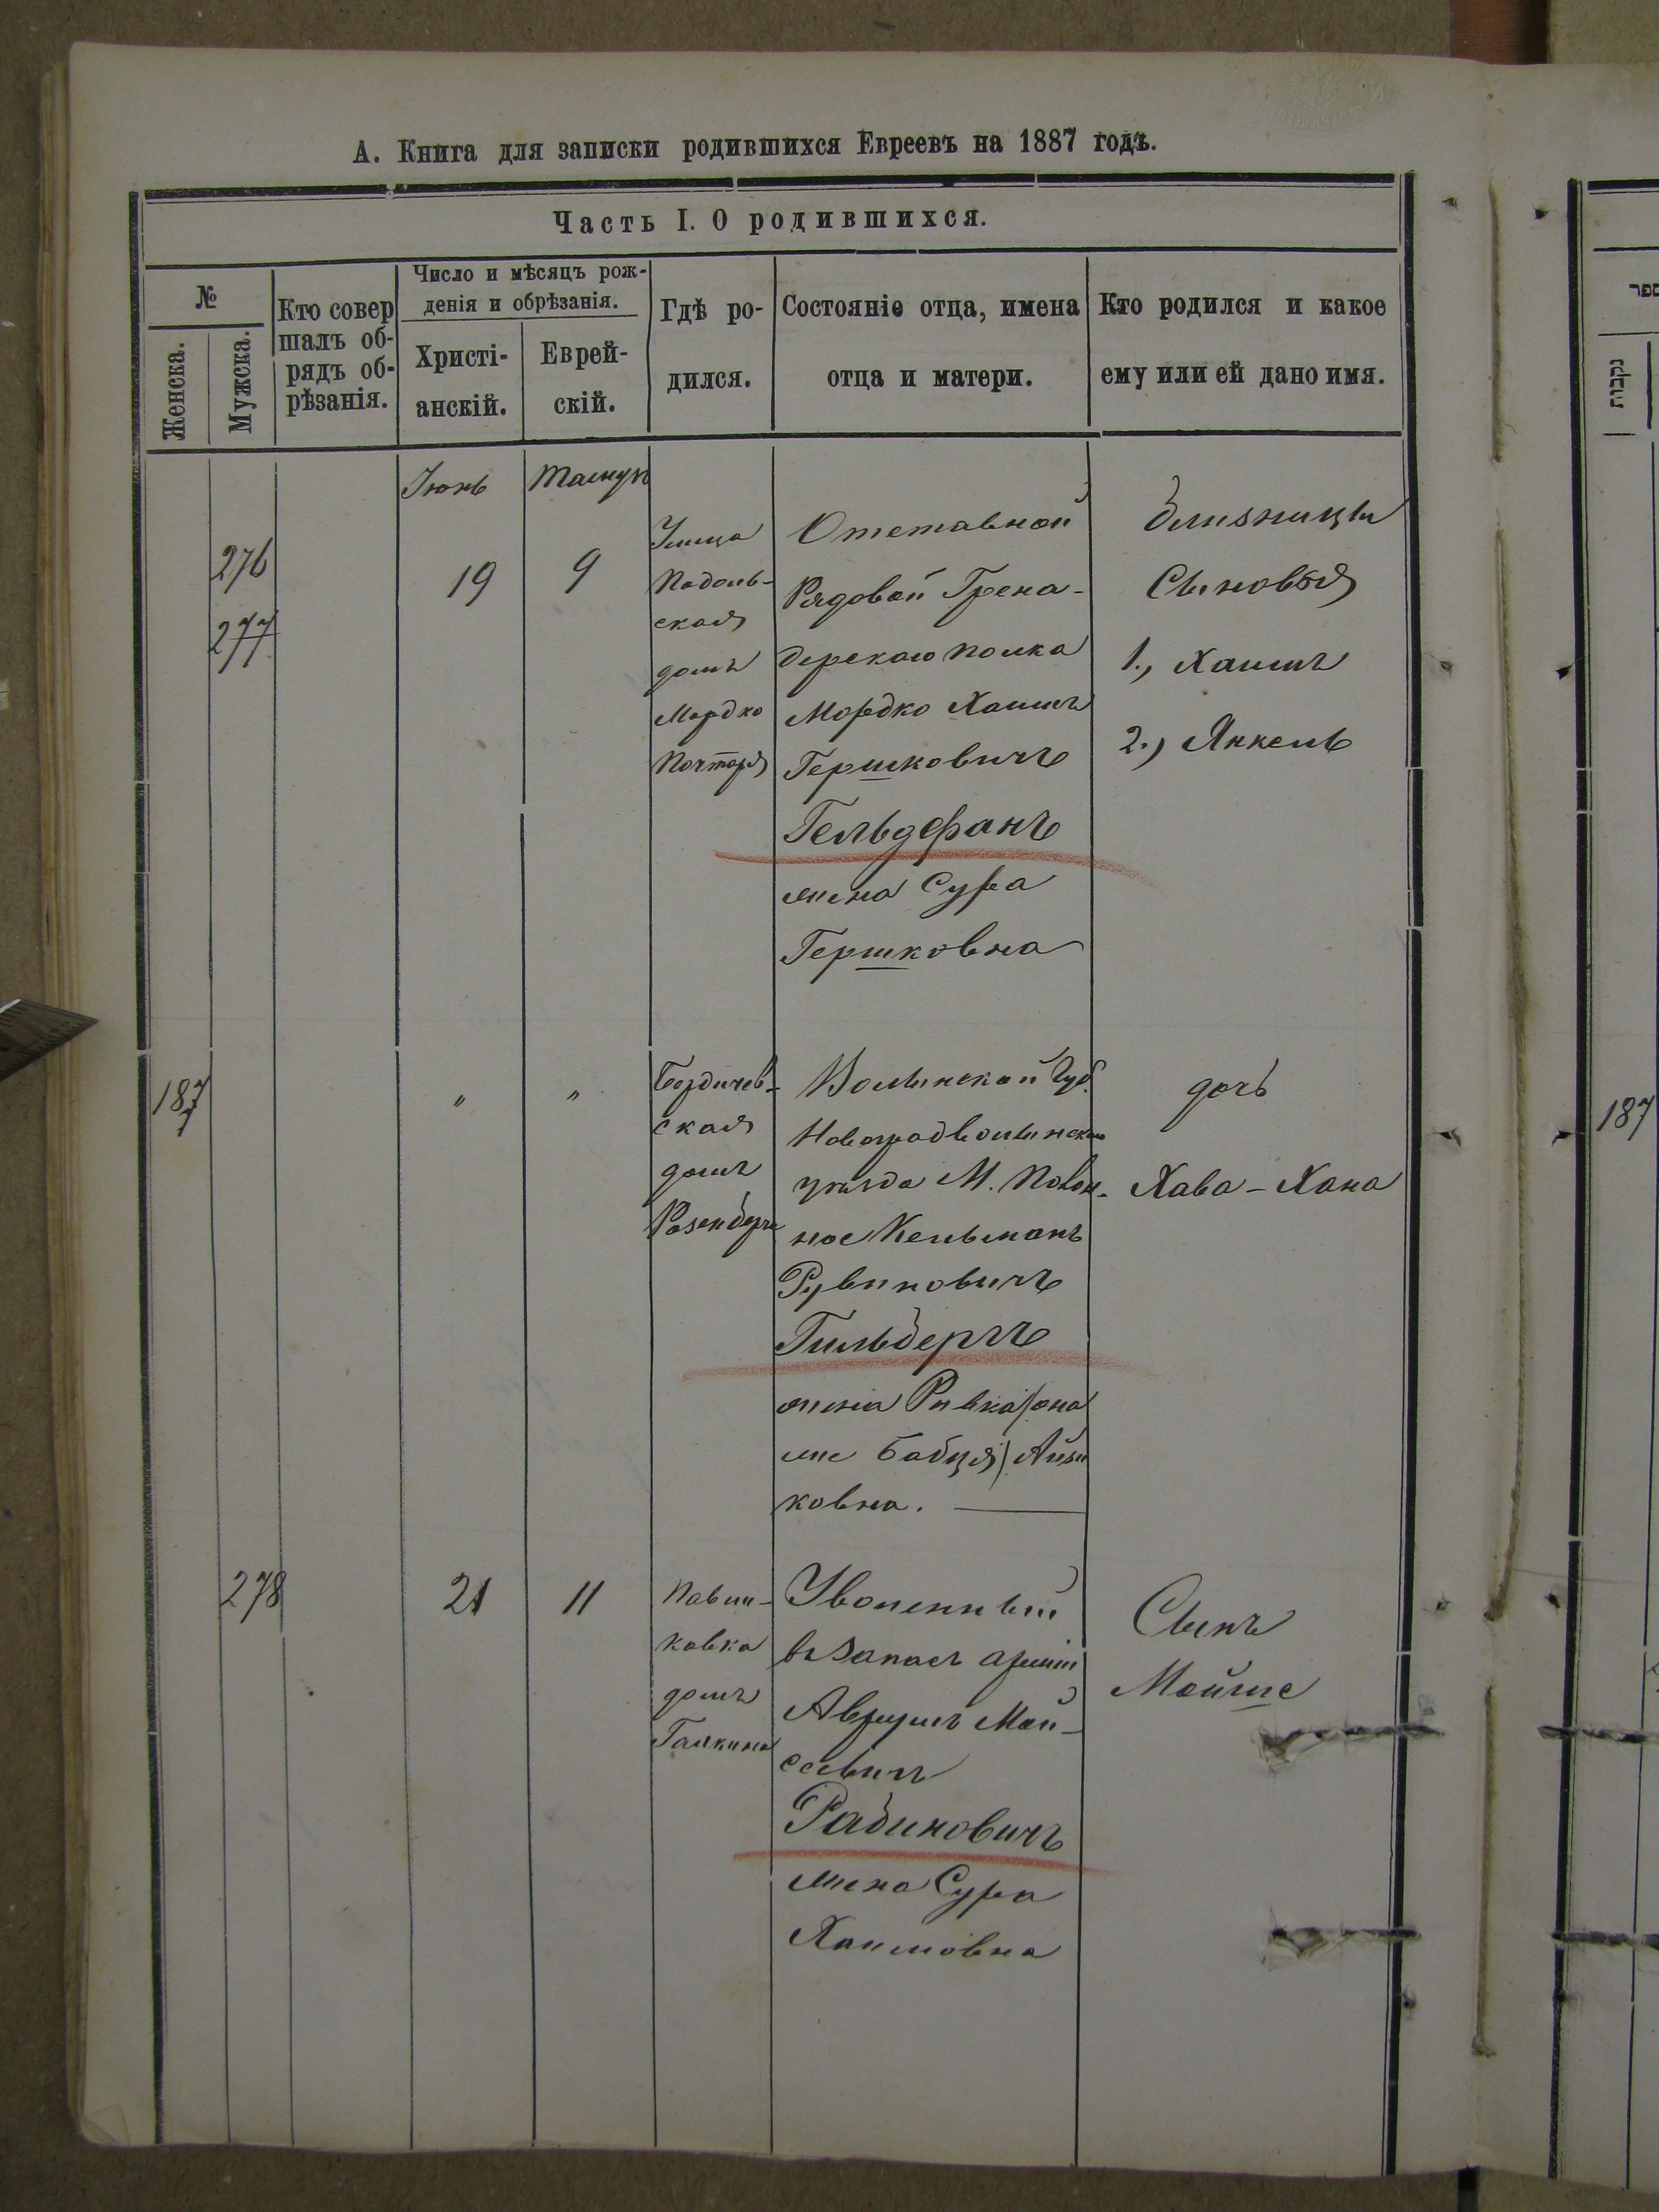 А. Книга для записки родившихся Евреевъ на 1887 годъ.
Часть I. О родившихся.
№
Женска.
Мужска.
Кто совер
шалъ об-
рядъ об-
рѣзанія.
Число и мѣсяцъ рож-
денія и обрѣзанія.
Христі-
анскій.
Еврей-
скій.
Гдѣ ро-
дился.
Состояніе отца, имена
отца и матери.
Кто родился и какое
ему или ей дано имя.
276
277
Іюнь
19
Тамузъ
9
Улица
Подоль-
ская
домъ
Мордко
Почтаря
Отставной
Рядовой Грена-
дерскаго полка
Мордко Хаимъ
Гершковичъ
Гельдфанъ
жена Сура
Гершковна
близнецы
Сыновья
1., Хаимъ
2., Янкель
187
"
"
Бердичев-
ская
домъ
Розенберга
Волынской Губ.
Новоградволынскаго
уѣзда М. Полон-
ное Кельманъ
Рувиновичъ
Гильбергъ
жена Ривка (она
же Бабця) Айзи
ковна.
дочь
Хава-Хана
278
21
11
Павли-
ковка
домъ
Галкина
Уволенный
въ запасъ арміи
Аврумъ Мой-
сеевичъ
Рабиновичъ
жена Сура
Хаимовна
Сынъ
Мойше
ספר
נקבות
187